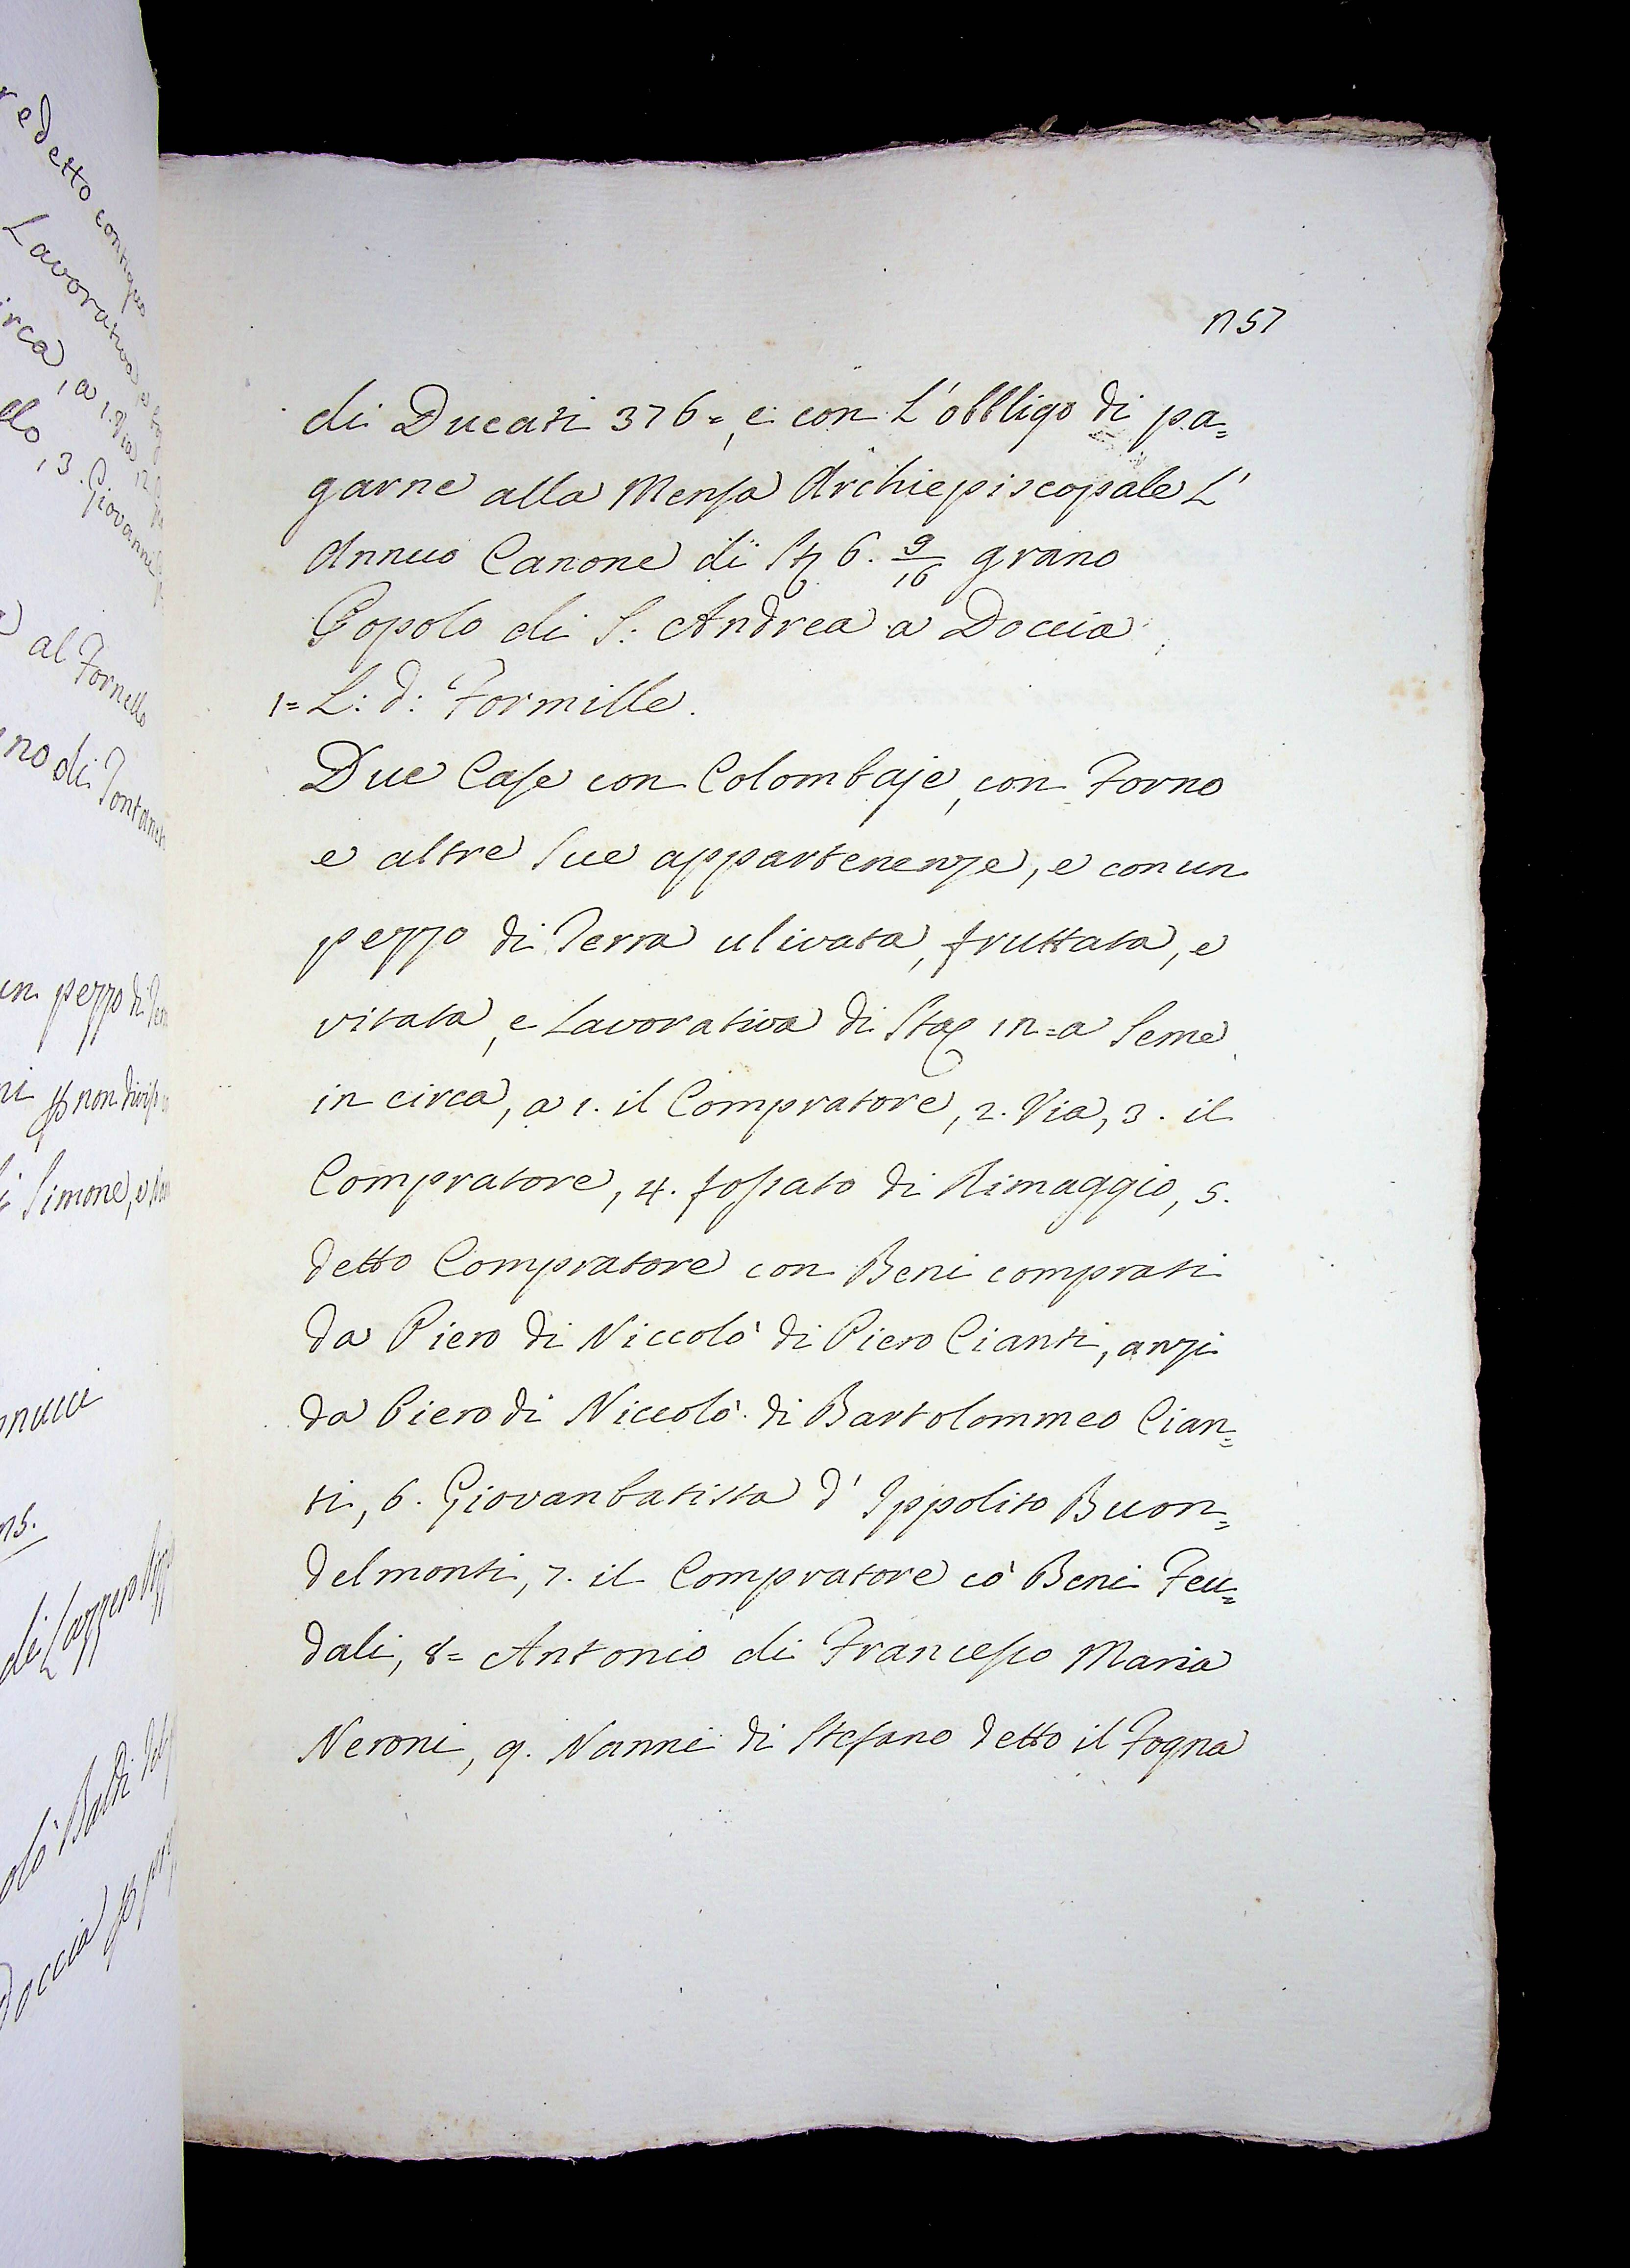 257
di Ducati 376=, e con L'obbligo di pa=
garne alla Mensa Archiepiscopale L'
Annuo Canone di 6. 9/16 grano
Popolo di S: Andrea a Doccia
1= L: d: Formille.
Due Case con Colombaje, con Forno
e altre sue appartenenze, e con un
pezzo di Terra ulivata, fruttata, e
vitata, e Lavorativa di Sta 12=a Seme
in circa, a 1. il Compratore, 2. Via, 3. il
Compratore, 4. fossato di Rimaggio, 5.
detto Compratore con Beni comprati
da Piero di Niccolò di Piero Cianti, anzi
da Piero di Niccolò di Bartolommeo Cian=
ti, 6. Giovanbatista d' Ippolito Buon=
delmonti, 7. il Compratore cò Beni Feu=
dali, 8= Antonio di Francesco Maria
Neroni, 9. Nanni di Stefano detto il Fogna
al Fornello
Lavorativa
3. Giovanni
un pezzo di
non divis
di Simone, e
di Lazzero
Baldi
Doccia